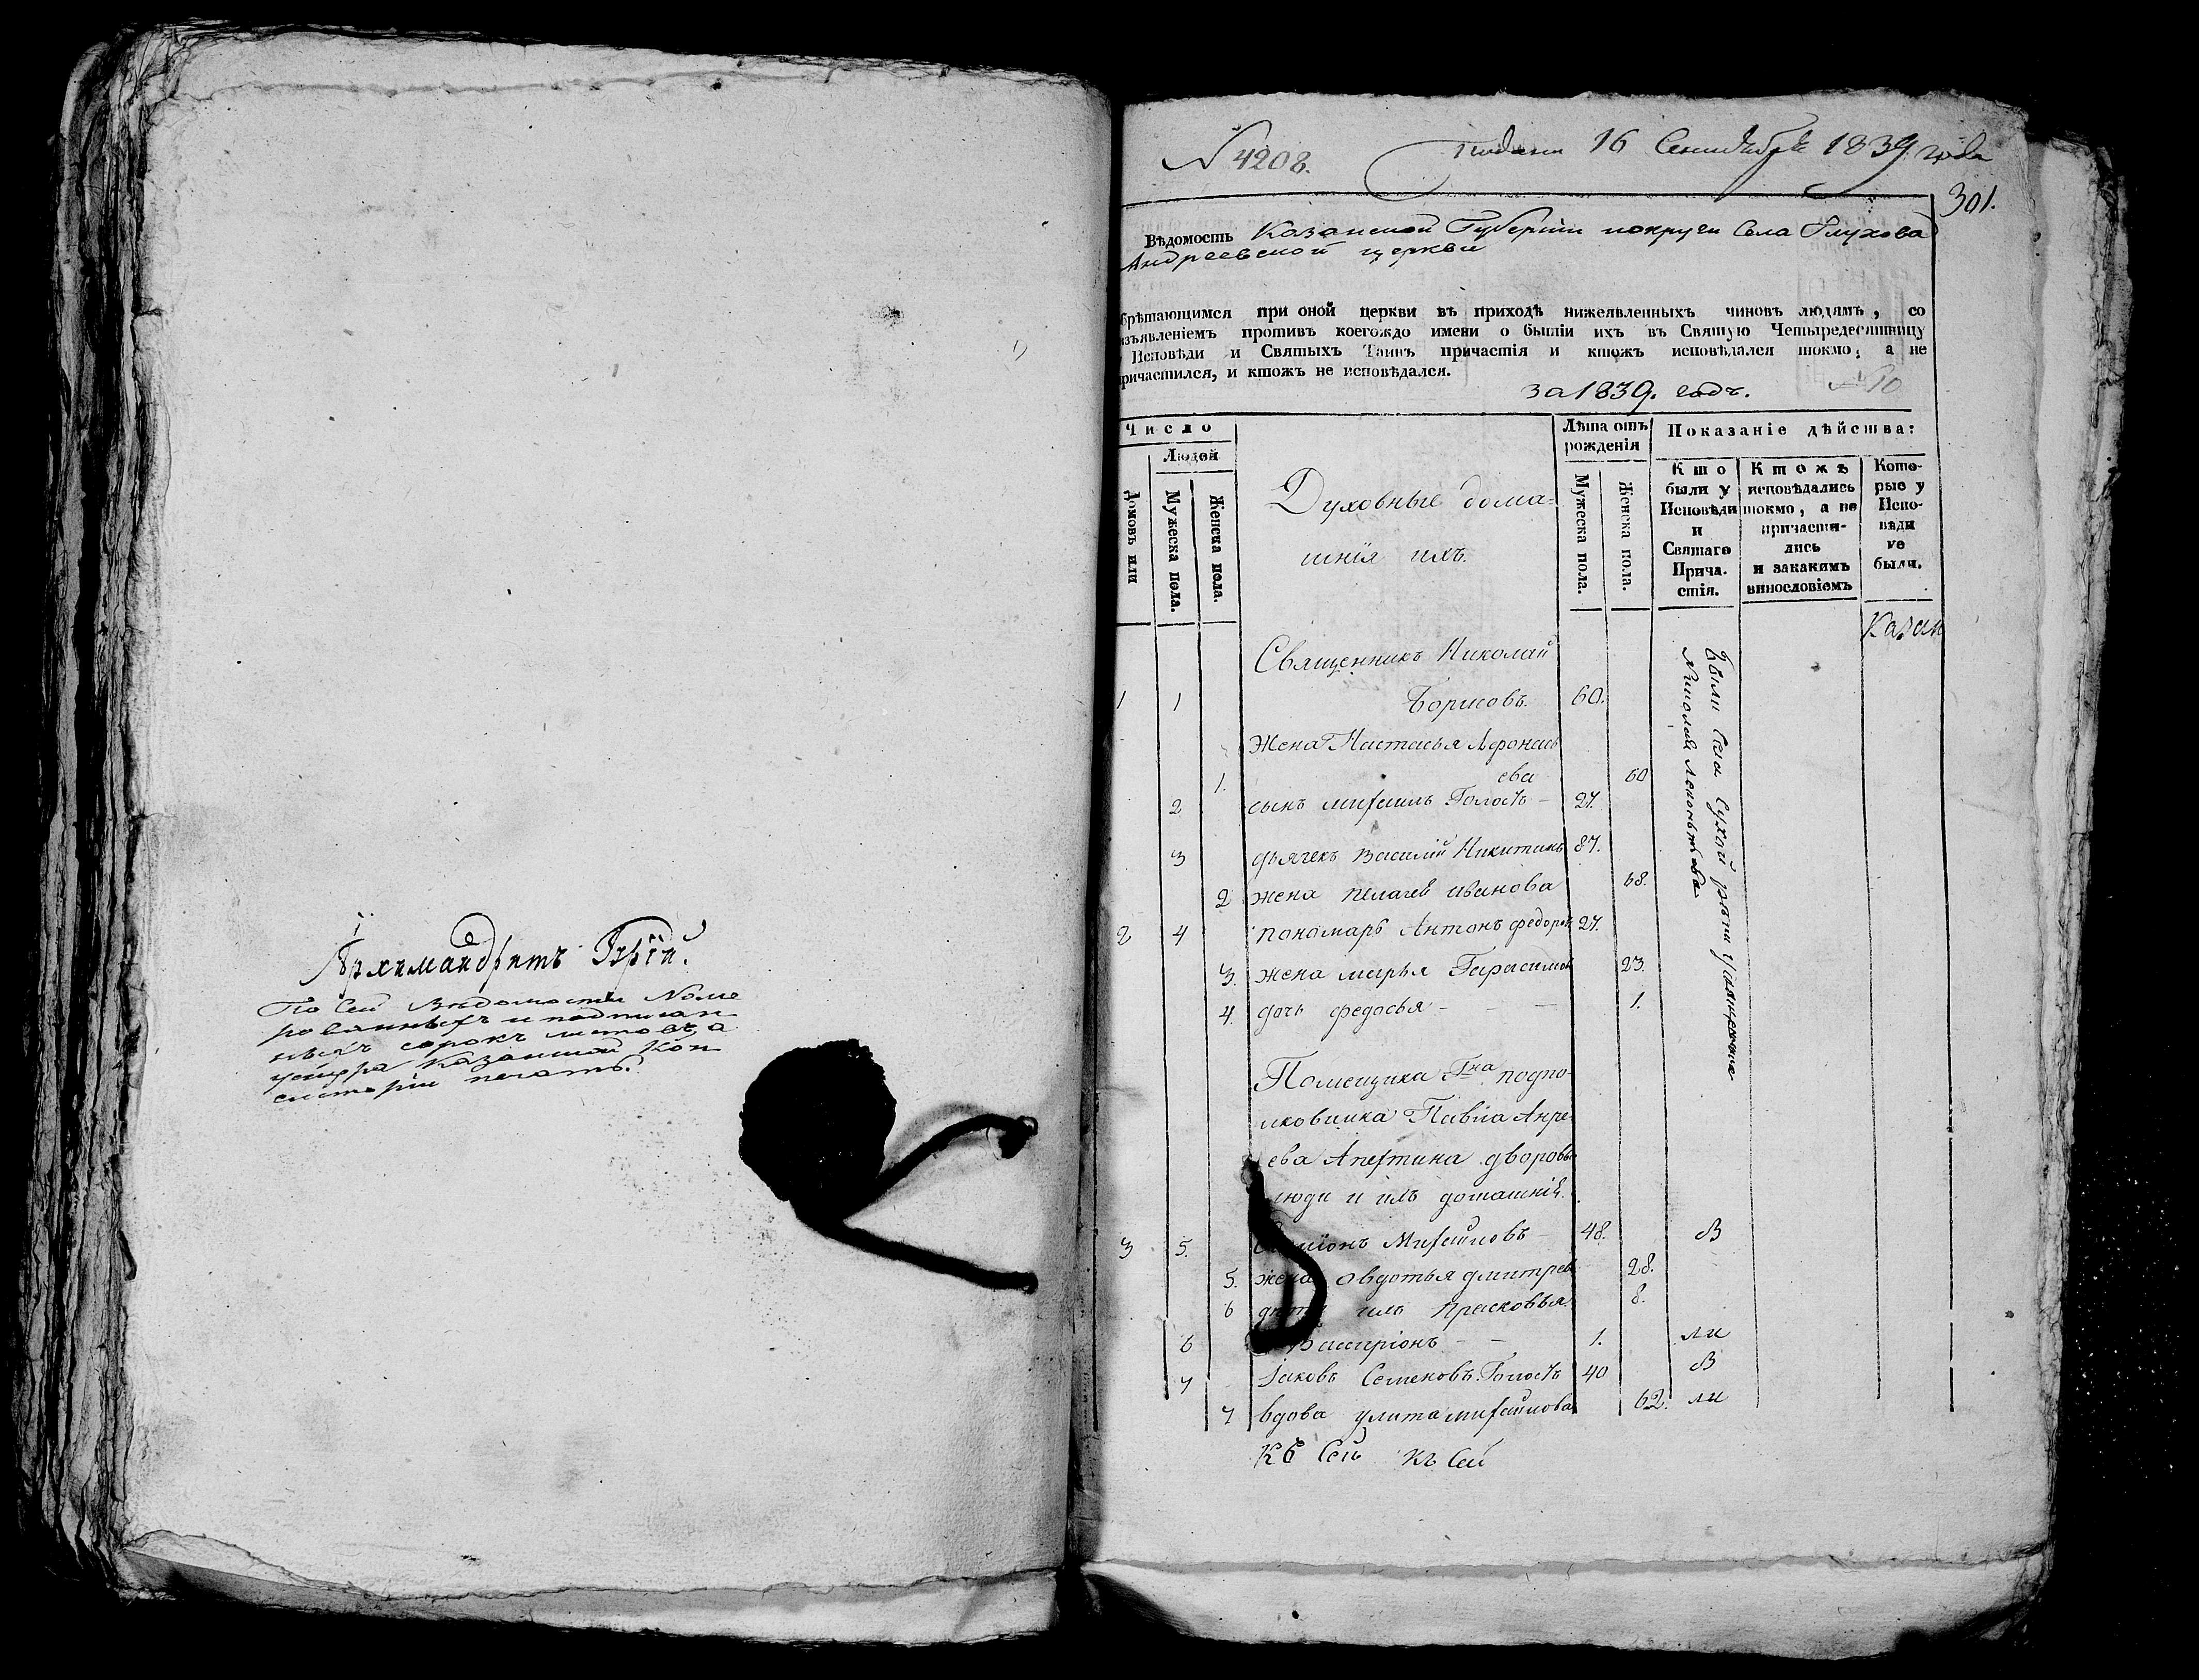 Архимандритъ Гурїй.
По сей Ведомости Номе
рованныхъ и подписан
ныхъ сорокъ листовъ, а
Казанской Кон
систоріи печать.
N 4208.
Подана 16 Сентября 1839 года
301.
Вѣдомость Казанской Губерніи иокруги Села Глухова
Андреевской церкви
обрѣтающимся при оной церкви въ приходѣ нижеявленныхъ чиновъ людямъ, со
изъявленіемъ противъ коегождо имени о бытіи ихъ въ Святую Четыредесятницу
у Исповѣди и Святыхъ Таинъ причастія и ктожъ исповѣдался токмо, а не
причастился, и ктожъ не исповѣдался.
за 1839. годъ.
Число
Людей
Домовъ или
Мужеска пола.
Женска пола.
Духовные дома=
шнія ихъ.
Лѣта отъ рожденія
Мужеска пола.
Женска пола.
Показаніе дѣйства:
Кто были у Исповѣди и Святаго Прича- стія.
Ктожъ исповѣдались токмо, а не причасти- лись и закакимъ винословіемъ
Кото- рые у Испо- вѣди не были.
Казан
Священникъ Николай
1 1 Борисовъ. 60.
Жена Настасья Афонась
1. ева 60
2 сынъ михаилъ Холостъ 27.
3 дьячекъ Василий Никитинъ 87.
2 жена пелагея иванова 68.
2 4 пономарь Антонъ федоровъ 27.
3. жена марья Гарасимов 23.
4. дочь федосья - - - 1.
Были Села Сухой рѣки у священника
Николая
Помещика Гна подпо-
лковника Павла Анре
ева Апехтина дворовы
люди и ихъ домашнія.
3 5. Михаиловъ - 48. В
5. жена овдотья дмитрева 28.
6 дети ихъ Прасковья. 8.
6 Висаріонъ - - 1. ли
7 Іаковъ Семеновъ. Холостъ 40 В
7 вдова улита михаилова 62. ли
Къ Сей къ Сей